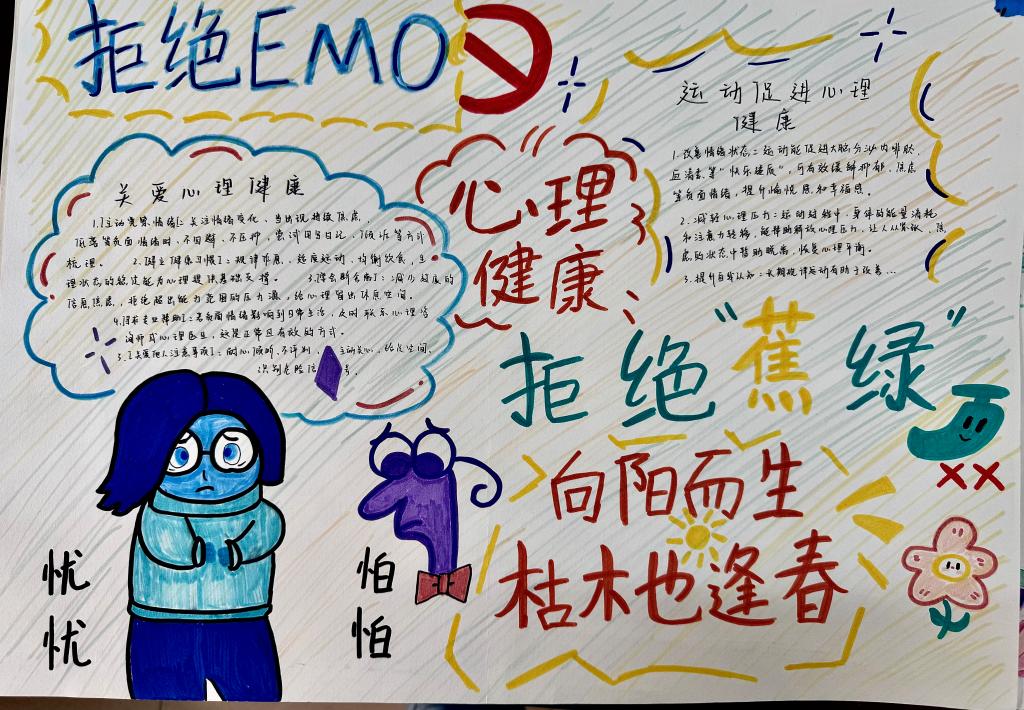 拒绝EMO
关爱心理健康
1.[主动觉察情绪]：关注情绪变化，当出现持续焦虑、
低落等负面情绪时，不回避、不压抑，尝试用写日记、倾诉等方式
梳理。 2.[建立健康习惯]：规律作息，适度运动，均衡饮食，生
理状态的稳定能为心理提供基础支撑。 3.[学会割舍]：减少过度的
信息焦虑，拒绝超出能力范围的压力源，给心理留出休息空间。
4.[寻求专业帮助]：若负面情绪影响到日常生活，及时联系心理咨
询师或心理医生，这是正常且有效的方式。
3.[关爱他人注意事项]：耐心倾听、不评判，主动关心，给足空间，
识别危险信号。
心理
健康
运动促进心理
健康
1.改善情绪状态：运动能促进大脑分泌内啡肽、
血清素等“快乐物质”，可有效缓解抑郁、焦虑
等负面情绪，提升愉悦感和幸福感。
2.减轻心理压力：运动过程中，身体的能量消耗
和注意力转移，能帮助释放心理压力，让人从紧张、焦
虑的状态中暂时脱离，恢复心理平衡。
3.提升自我认知：长期规律运动有助于改善...
拒绝“蕉绿”
向阳而生
枯木也逢春
忧
忧
怕
怕